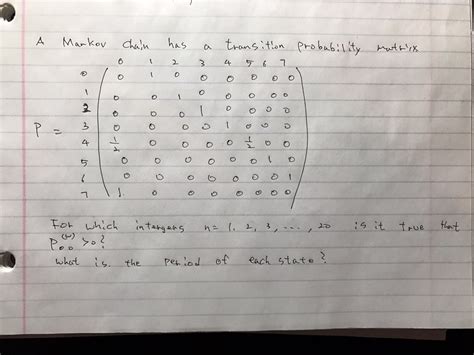 A Markov chain has a transition probability matrix
0 1 2 3 4 5 6 7
0 0 1 0 0 0 0 0 0
1 0 0 1 0 0 0 0 0
2 0 0 0 1 0 0 0 0
P = 3 0 0 0 0 1 0 0 0
4 1/2 0 0 0 0 1/2 0 0
5 0 0 0 0 0 0 1 0
6 0 0 0 0 0 0 0 1
7 1 0 0 0 0 0 0 0
For which intergers n= 1, 2, 3, ..., 20 is it true that
P₀₀⁽ⁿ⁾ >0?
What is the period of each state?